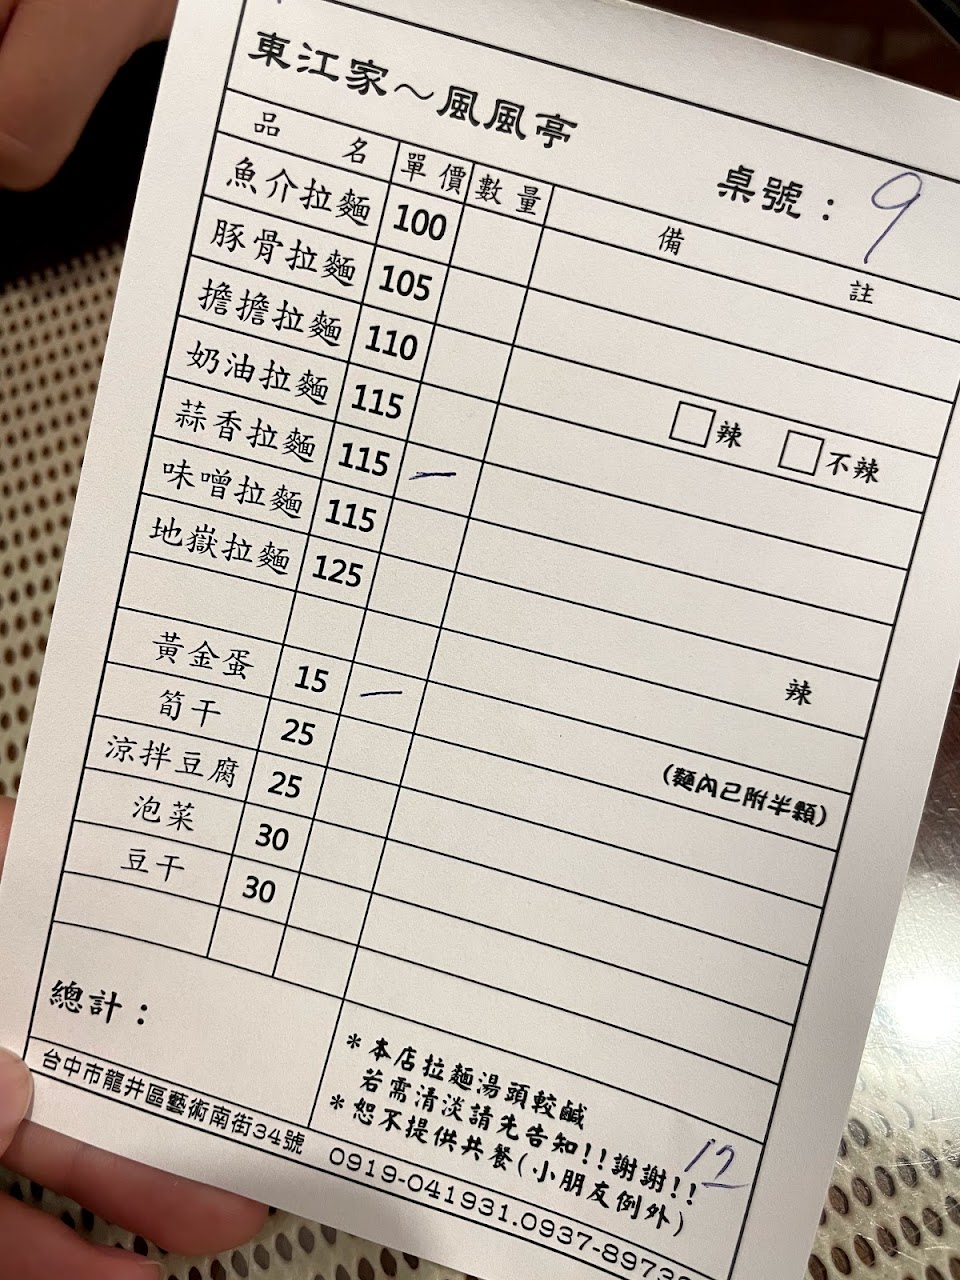 東江家～風風亭
桌號：9
品名 單價 數量 備註
魚介拉麵 100
豚骨拉麵 105
擔擔拉麵 110 辣 不辣
奶油拉麵 115
蒜香拉麵 115 一
味噌拉麵 115
地獄拉麵 125 辣
黃金蛋 15 一 (麵內已附半顆)
筍干 25
涼拌豆腐 25
泡菜 30
豆干 30
總計：
*本店拉麵湯頭較鹹
若需清淡請先告知!!謝謝!!
*恕不提供共餐(小朋友例外)
12
台中市龍井區藝術南街34號 0919-041931.0937-8973